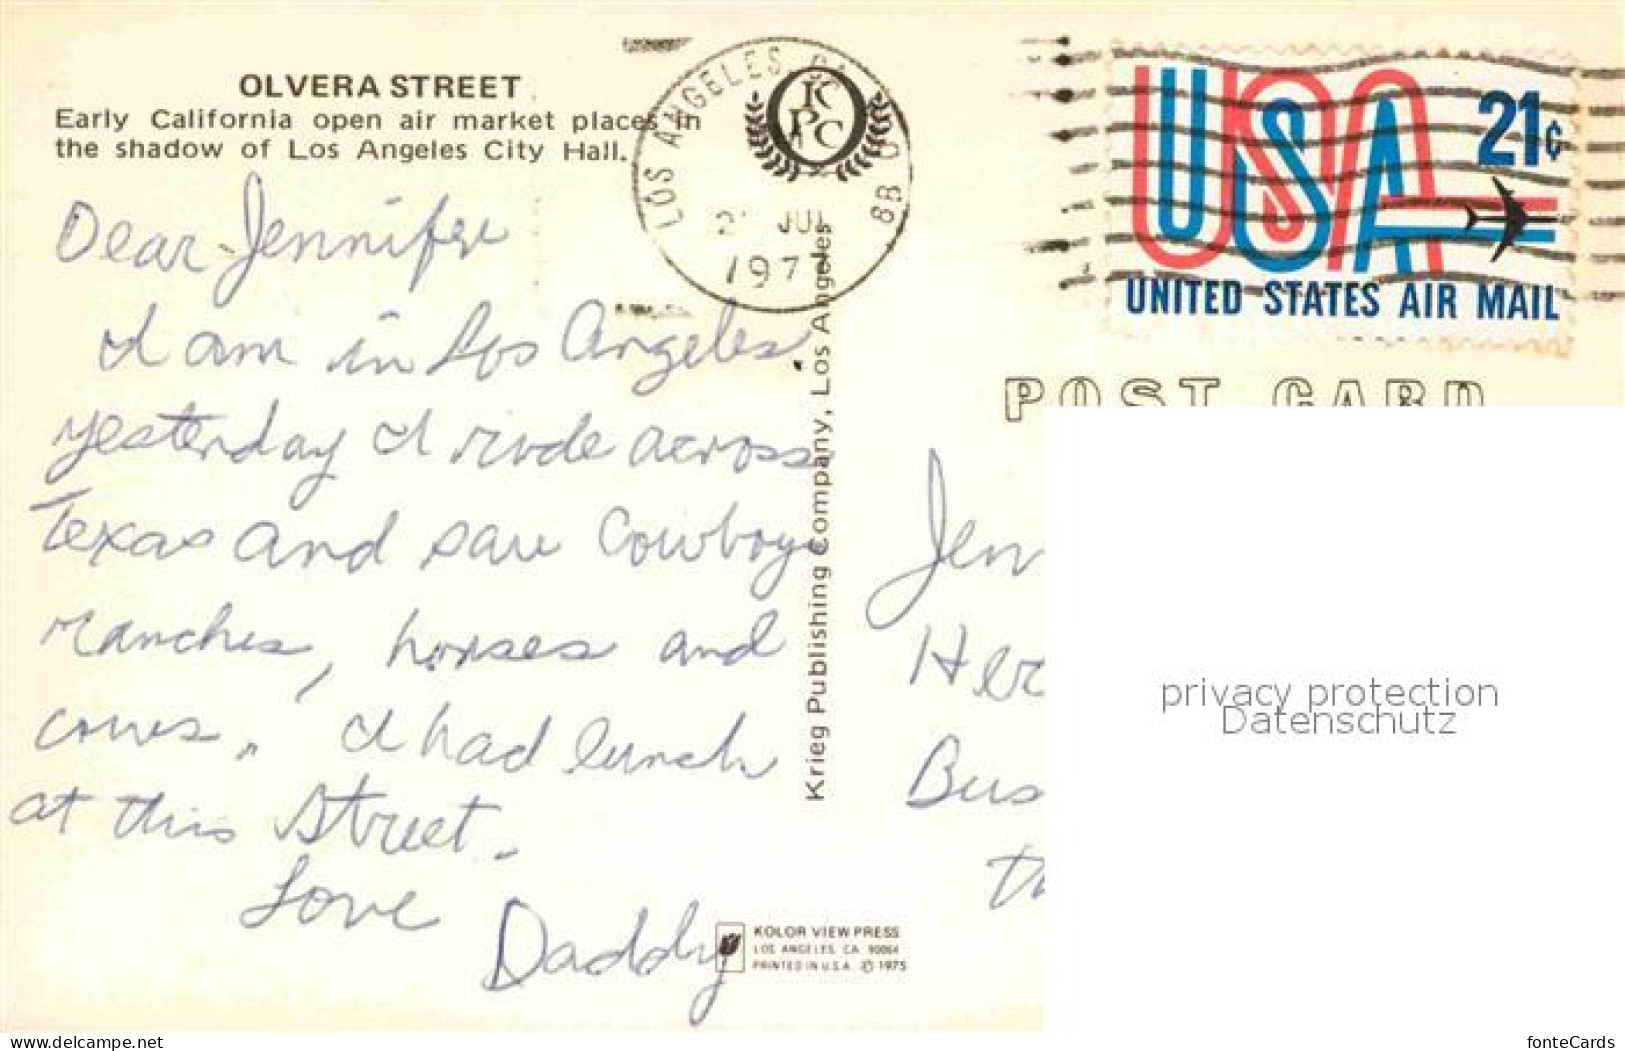 OLVERA STREET
Early California open air market places in
the shadow of Los Angeles City Hall.
Dear Jennifer
I am in Los Angeles
yesterday I rode across
Texas and saw Cowboys
ranches, horses and
cows. I had lunch
at this Street.
Love
Daddy
LOS ANGELES
JUL
197
KPC
Krieg Publishing Company, Los Angeles
KOLOR VIEW PRESS
LOS ANGELES, CA 90064
PRINTED IN U.S.A. © 1975
USA
21¢
UNITED STATES AIR MAIL
POST CARD
Jen
Her
Bus
Th
privacy protection
Datenschutz
www.delcampe.net
fonteCards